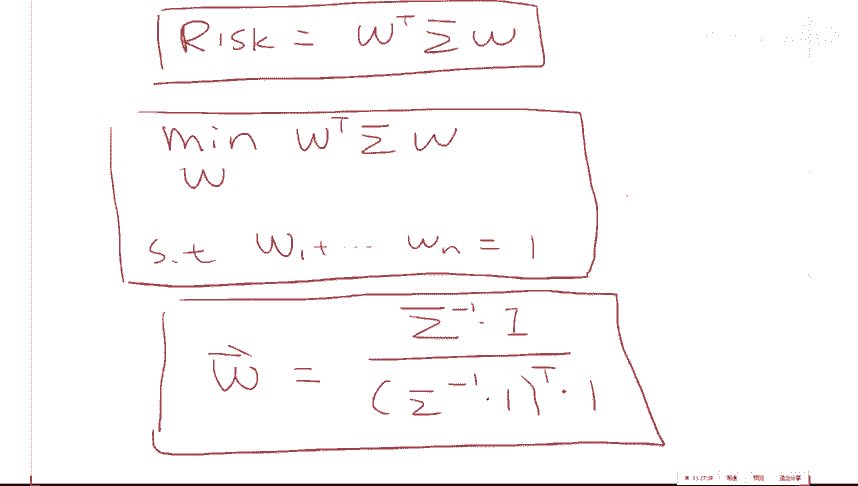 Risk = Wᵀ Σ W
min Wᵀ Σ W
W
s.t W₁ + ... Wₙ = 1
Σ⁻¹ · 1
W⃗ = ─────
(Σ⁻¹ · 1)ᵀ · 1